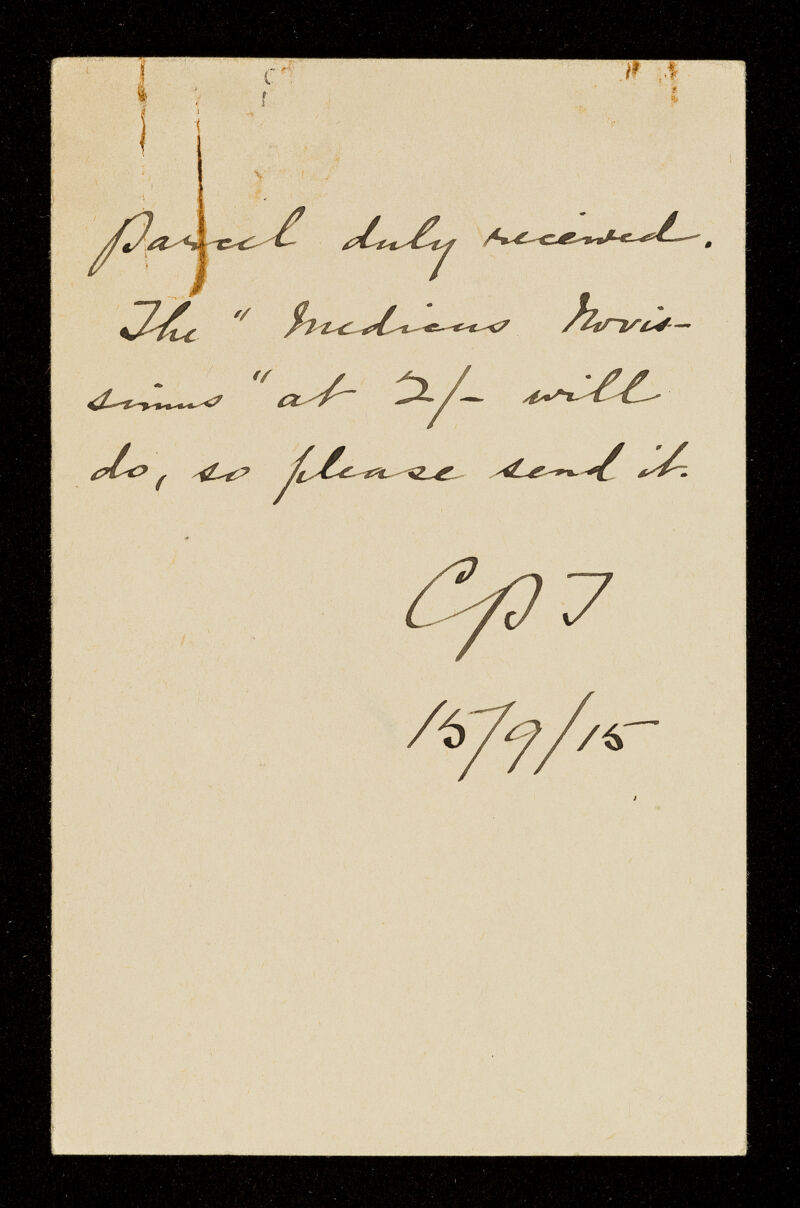 Parcel duly received.
The "Medicus Novis-
simus" at 2/- will
do, so please send it.
CPT
15/9/15